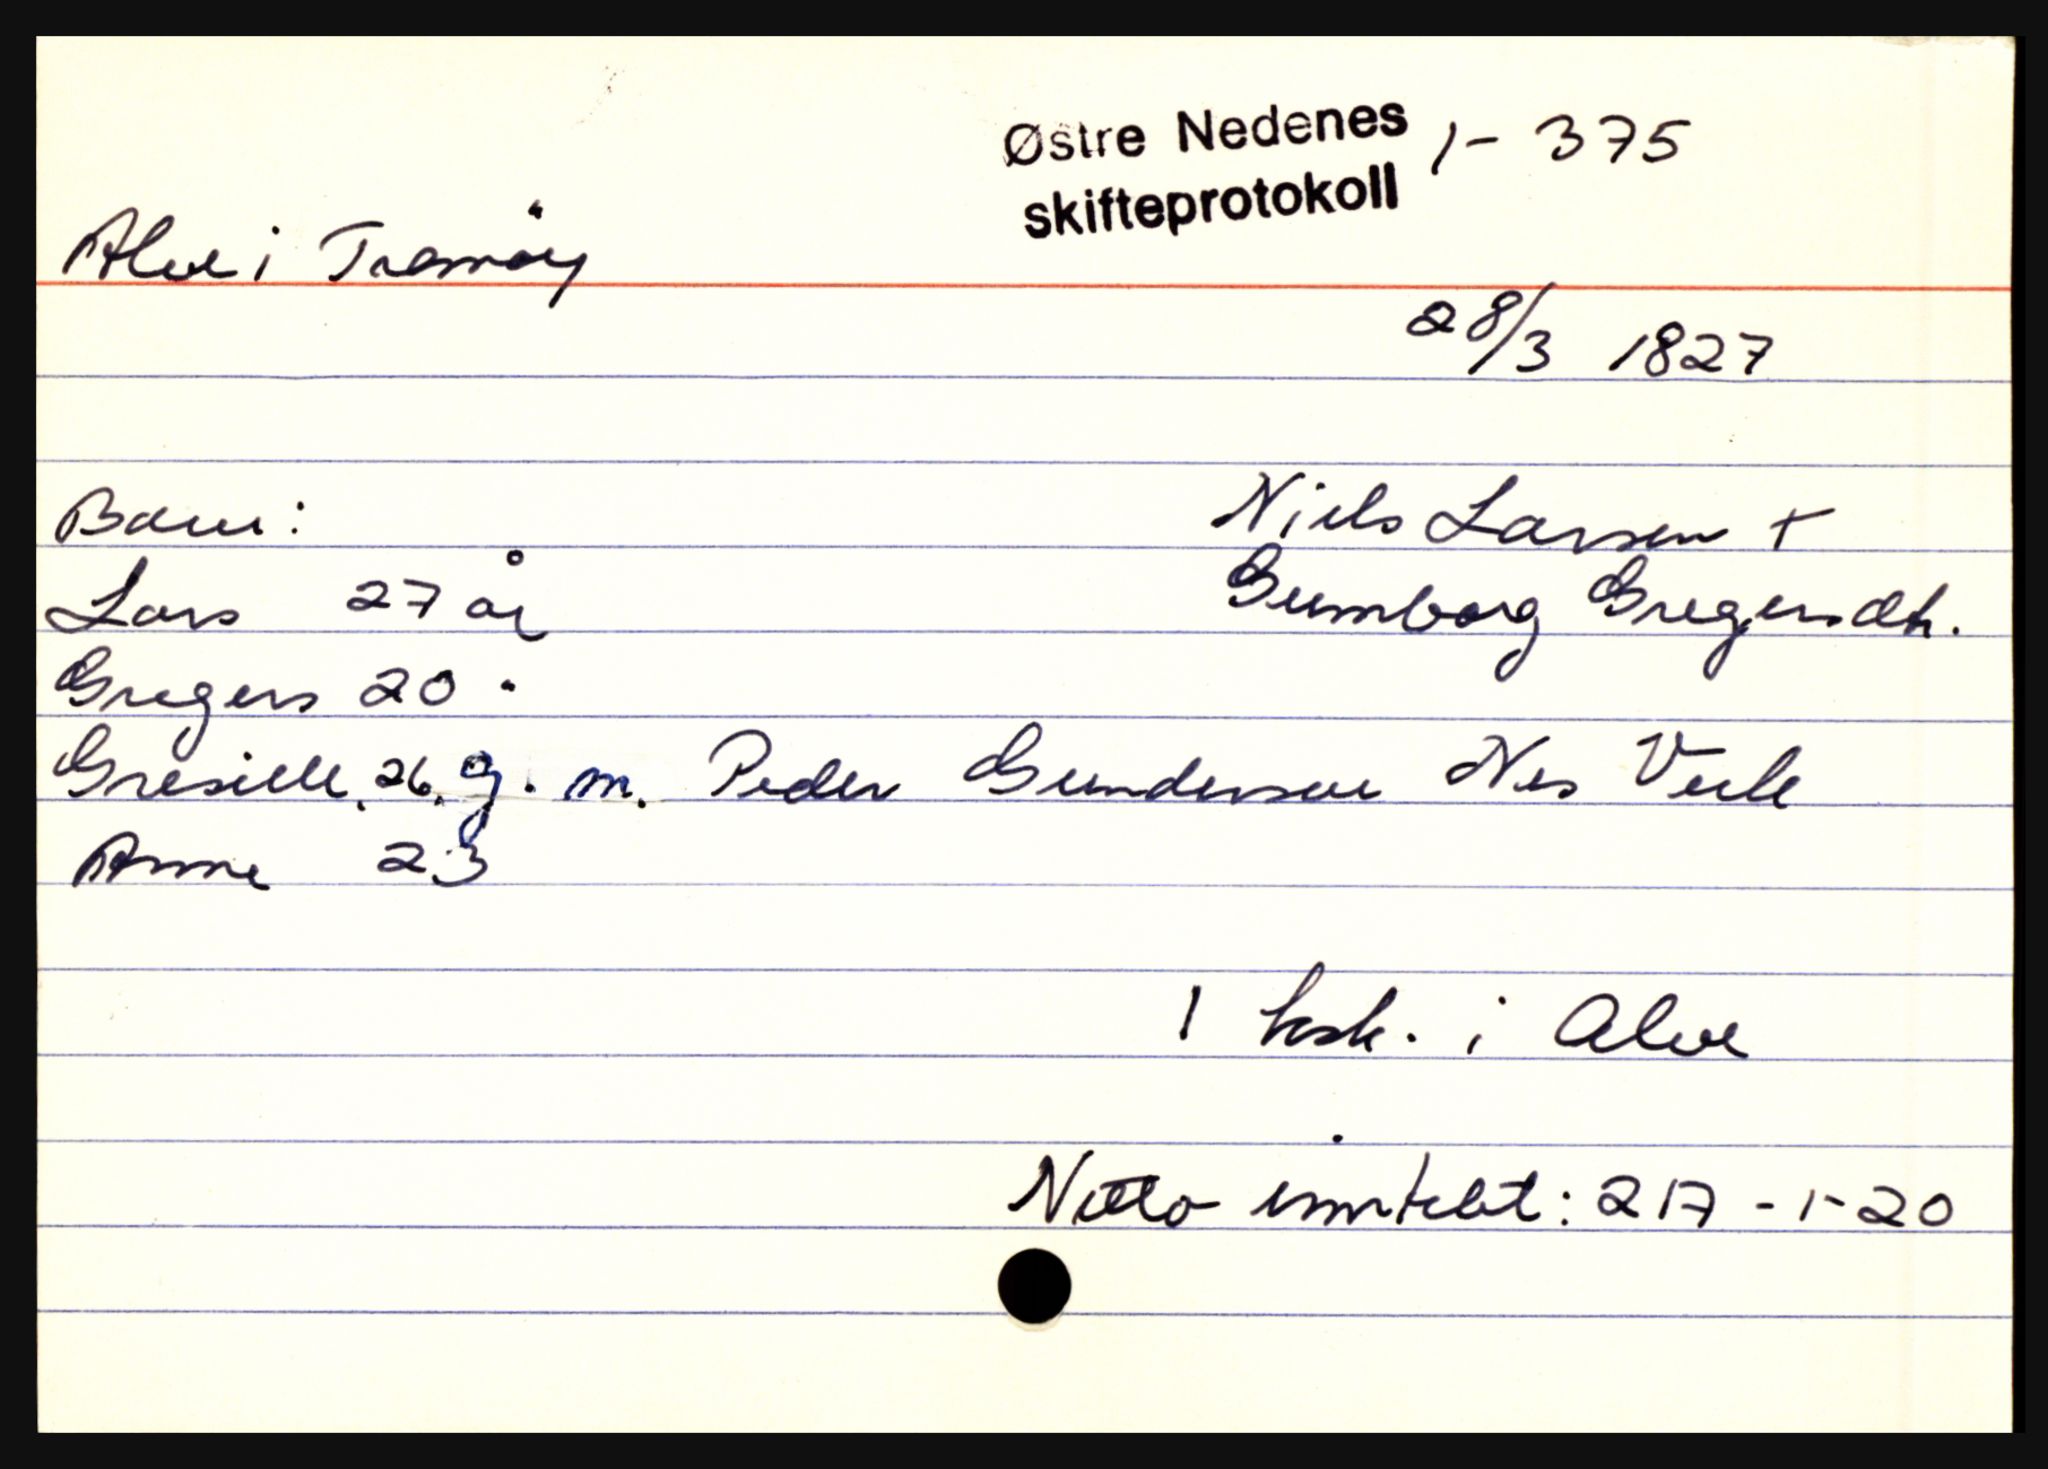 Østre Nedenes 1-375
skifteprotokoll
Alve i Tromöy
28/3 1827
Barn: Niels Larsen +
Lars 27 år Gumborg Gregersdtr.
Gregers 20 "
Gresille 26 g. m. Peder Gundersen Nes
Anne 23
1 husk. i Alve
Netto inntekt: 217-1-20